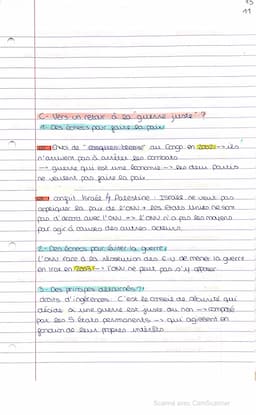 11
C- Vers un retour à la "guerre juste" ?
1- Des échecs pour faire la paix
Envoi de "casques bleus" au Congo en 2002 → ils
n'arrivent pas à arrêter les combats
→ guerre qui est une économie → les deux partis
ne veulent pas faire la paix
conflit Israël / Palestine : Israël ne veut pas
appliquer la paix de l'ONU + les États Unis ne sont
pas d'accord avec l'ONU → l'ONU n'a pas les moyens
par agir à causes des autres acteurs.
2- Des échecs pour éviter la guerre
L'ONU face à la résolution des E-U de mener la guerre
en Irak en 2003 → l'ONU ne peut pas s'y opposer
3- Des principes détournés ?
droits d'ingérences. C'est le conseil de sécurité qui
décide si une guerre est juste ou non → composé
par les 5 États permanents → qui agissent en
fonction de leurs propres intérêts
Scanné avec CamScanner